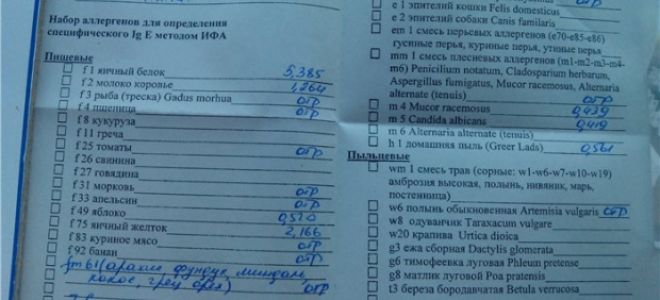 Набор аллергенов для определения
специфического Ig E методом ИФА
Пищевые
f 1 яичный белок 5,385
f 2 молоко коровье 1,264
f 3 рыба (треска) Gadus morhua отр
f 4 пшеница отр
f 8 кукуруза
f 11 греча
f 25 томаты отр
f 26 свинина
f 27 говядина
f 31 морковь отр
f 33 апельсин отр
f 49 яблоко 0,520
f 75 яичный желток 2,166
f 83 куриное мясо отр
f 92 банан отр
fm 61 (арахис, фундук, миндаль,
кокос, грец орех) отр
e 1 эпителий кошки Felis domesticus
e 2 эпителий собаки Canis familaris
em 1 смесь перьевых аллергенов (e70-e85-e86)
гусиные перья, куриные перья, утиные перья
mm 1 смесь плесневых аллергенов (m1-m2-m3-m4-
m6) Penicilium notatum, Cladosparium herbarum,
Aspergillus fumigatus, Mucor racemosus, Alternaria
alternate (tenuis) отр
m 4 Mucor racemosus 0,439
m 5 Candida albicans 0,419
m 6 Alternaria alternate (tenuis)
h 1 домашняя пыль (Greer Lads) 0,561
Пыльцевые
wm 1 смесь трав (сорные: w1-w6-w7-w10-w19)
амброзия высокая, полынь, нивяник, марь,
постенница)
w6 полынь обыкновенная Artemisia vulgaris отр
w8 одуванчик Taraxacum vulgare
w20 крапива Urtica dioica
g3 ежа сборная Dactylis glomerata
g6 тимофеевка луговая Phleum pretense
g8 матлик луговой Poa pratensis
t3 береза бородавчатая Betula verrucosa